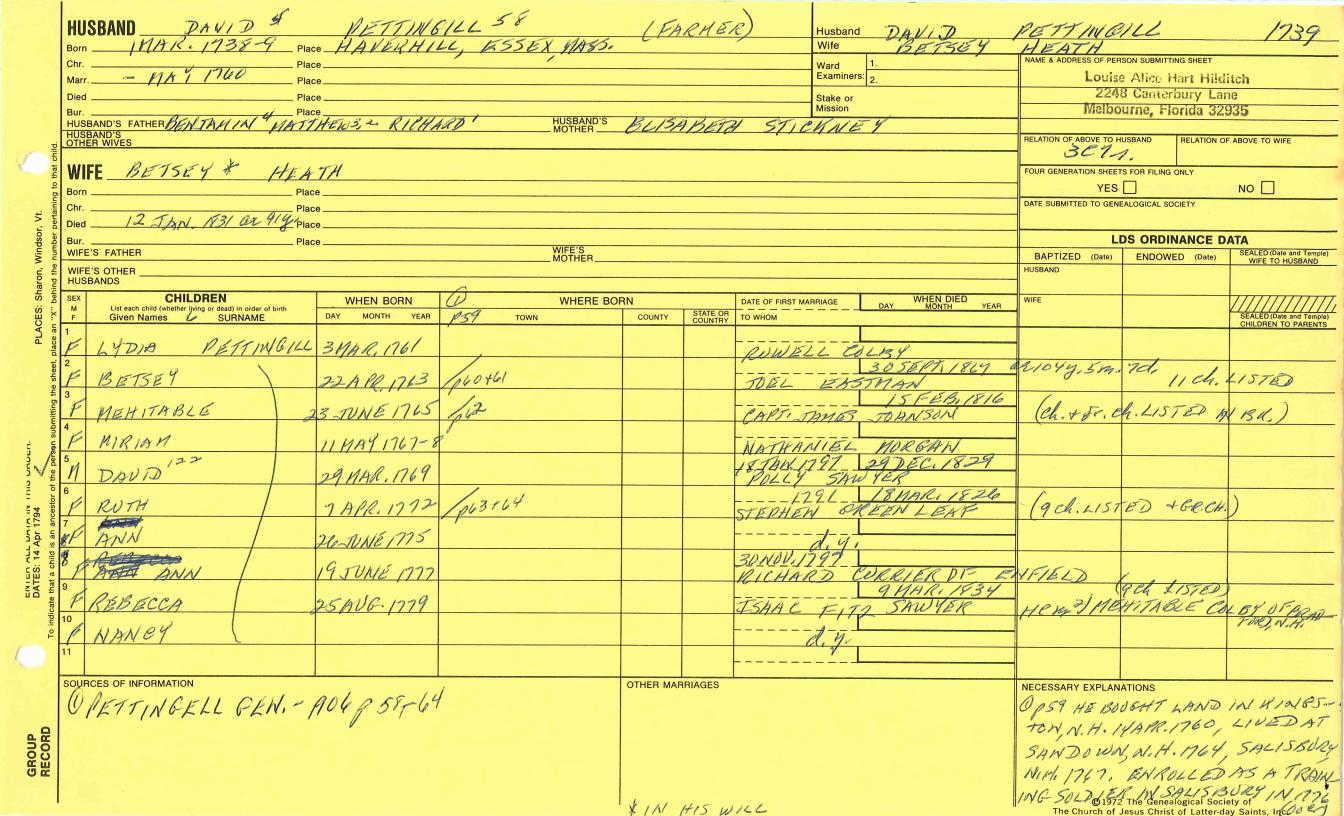 HUSBAND DAVID 5 PETTINGILL 58 (FARMER)
Born 1 MAR. 1738-9 Place HAVERHILL, ESSEX, MASS.
Chr. Place
Marr. - MAY 1760 Place
Died Place
Bur. Place
HUSBAND'S FATHER BENJAMIN 4 MATTHEW 3, 2 RICHARD 1 HUSBAND'S MOTHER ELISABETH STICKNEY
HUSBAND'S OTHER WIVES
WIFE BETSEY * HEATH
Born Place
Chr. Place
Died 12 JAN. 1831 a. 91y. Place
Bur. Place
WIFE'S FATHER WIFE'S MOTHER
WIFE'S OTHER HUSBANDS
Husband DAVID PETTINGILL 1739
Wife BETSEY HEATH
Ward Examiners: 1.
2.
Stake or Mission
NAME & ADDRESS OF PERSON SUBMITTING SHEET
Louise Alice Hart Hilditch
2248 Canterbury Lane
Melbourne, Florida 32935
RELATION OF ABOVE TO HUSBAND RELATION OF ABOVE TO WIFE
FOUR GENERATION SHEETS FOR FILING ONLY
YES NO
DATE SUBMITTED TO GENEALOGICAL SOCIETY
LDS ORDINANCE DATA
BAPTIZED (Date) ENDOWED (Date) SEALED (Date and Temple) WIFE TO HUSBAND
HUSBAND
WIFE
SEALED (Date and Temple) CHILDREN TO PARENTS
SEX M F
CHILDREN
List each child (whether living or dead) in order of birth
Given Names 6 SURNAME
WHEN BORN
DAY MONTH YEAR
① WHERE BORN
p59 TOWN COUNTY STATE OR COUNTRY
DATE OF FIRST MARRIAGE
TO WHOM
WHEN DIED
DAY MONTH YEAR
1 F LYDIA PETTINGILL 3 MAR. 1761 ROWELL COLBY
2 F BETSEY 22 APR. 1763 p60+61 30 SEPT. 1867 a. 104y. 5m. 7d.
JOEL EASTMAN 11 ch. LISTED
3 F MEHITABLE 23 JUNE 1765 p62 15 FEB. 1816
CAPT. JAMES JOHNSON (ch. + gr. ch. LISTED IN BK.)
4 F MIRIAM 11 MAY 1767-8 NATHANIEL MORGAN
5 M DAVID 122 29 MAR. 1769 18 JAN. 1797 29 DEC. 1829
POLLY SAWYER
6 F RUTH 7 APR. 1772 p63+64 1791 18 MAR. 1826
STEPHEN GREENLEAF (9 ch. LISTED + GR. CH.)
7 F ANN 26 JUNE 1775 d.y.
8 F ANN 19 JUNE 1777 30 NOV. 1797
RICHARD CURRIER OF ENFIELD
9 F REBECCA 25 AUG. 1779 9 MAR. 1834 (9 ch LISTED)
ISAAC FITZ SAWYER He m. 2) MEHITABLE COLBY OF BRADFORD, N.H.
10 F NANCY d.y.
11
SOURCES OF INFORMATION
① PETTINGELL GEN. - 1906 p 58-64
OTHER MARRIAGES
* IN HIS WILL
NECESSARY EXPLANATIONS
① p59 HE BOUGHT LAND IN KINGS-
TON, N.H. 14 APR. 1760, LIVED AT
SANDOWN, N.H. 1764, SALISBURY,
N.H. 1767. ENROLLED AS A TRAIN-
ING SOLDIER IN SALISBURY IN 1776
(over)
©1972 The Genealogical Society of
The Church of Jesus Christ of Latter-day Saints, Inc.
ENTER ALL DATA IN THIS ORDER:
DATES: 14 Apr 1794 PLACES: Sharon, Windsor, Vt.
To indicate that a child is an ancestor of the person submitting the sheet, place an "X" behind the number pertaining to that child.
GROUP RECORD